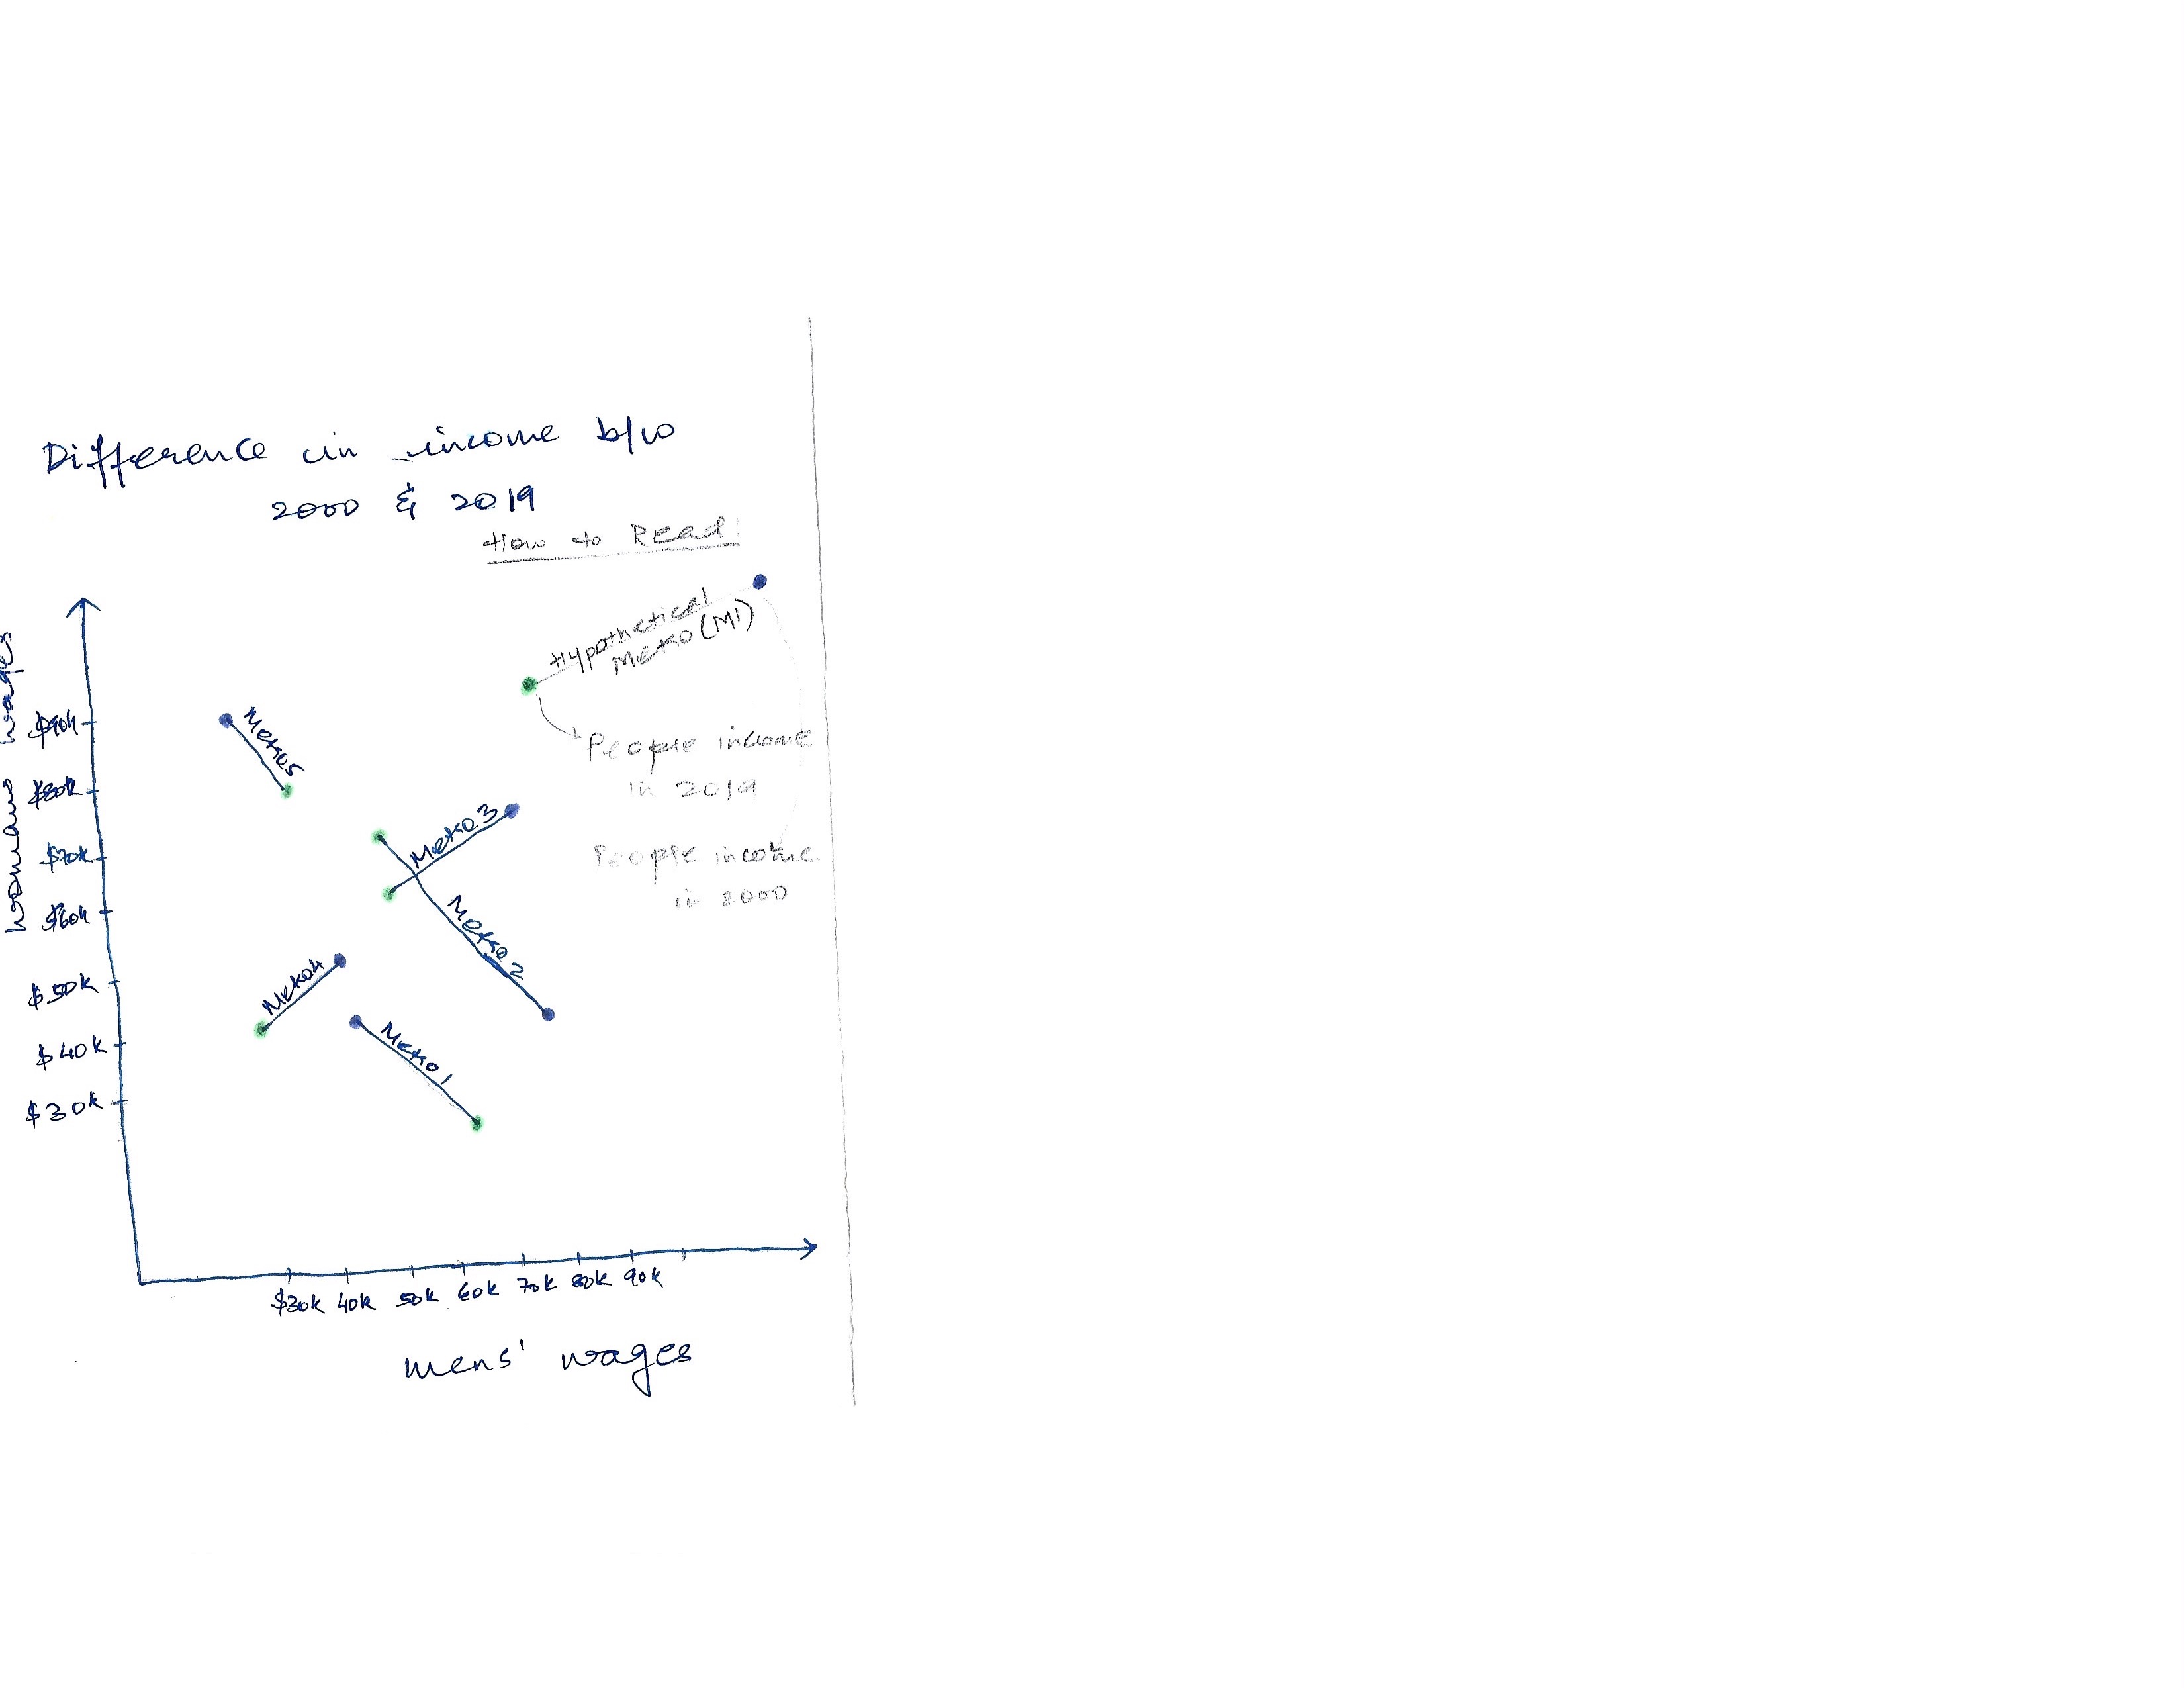 Difference in income b/w
2000 & 2019
How to Read:
Hypothetical
Metro (M1)
People income
in 2019
People income
in 2000
womans wages
$90k
$80k
$70k
$60k
$50k
$40k
$30k
Metro5
Metro3
Metro2
Metro4
Metro1
$30k 40k 50k 60k 70k 80k 90k
mens' wages